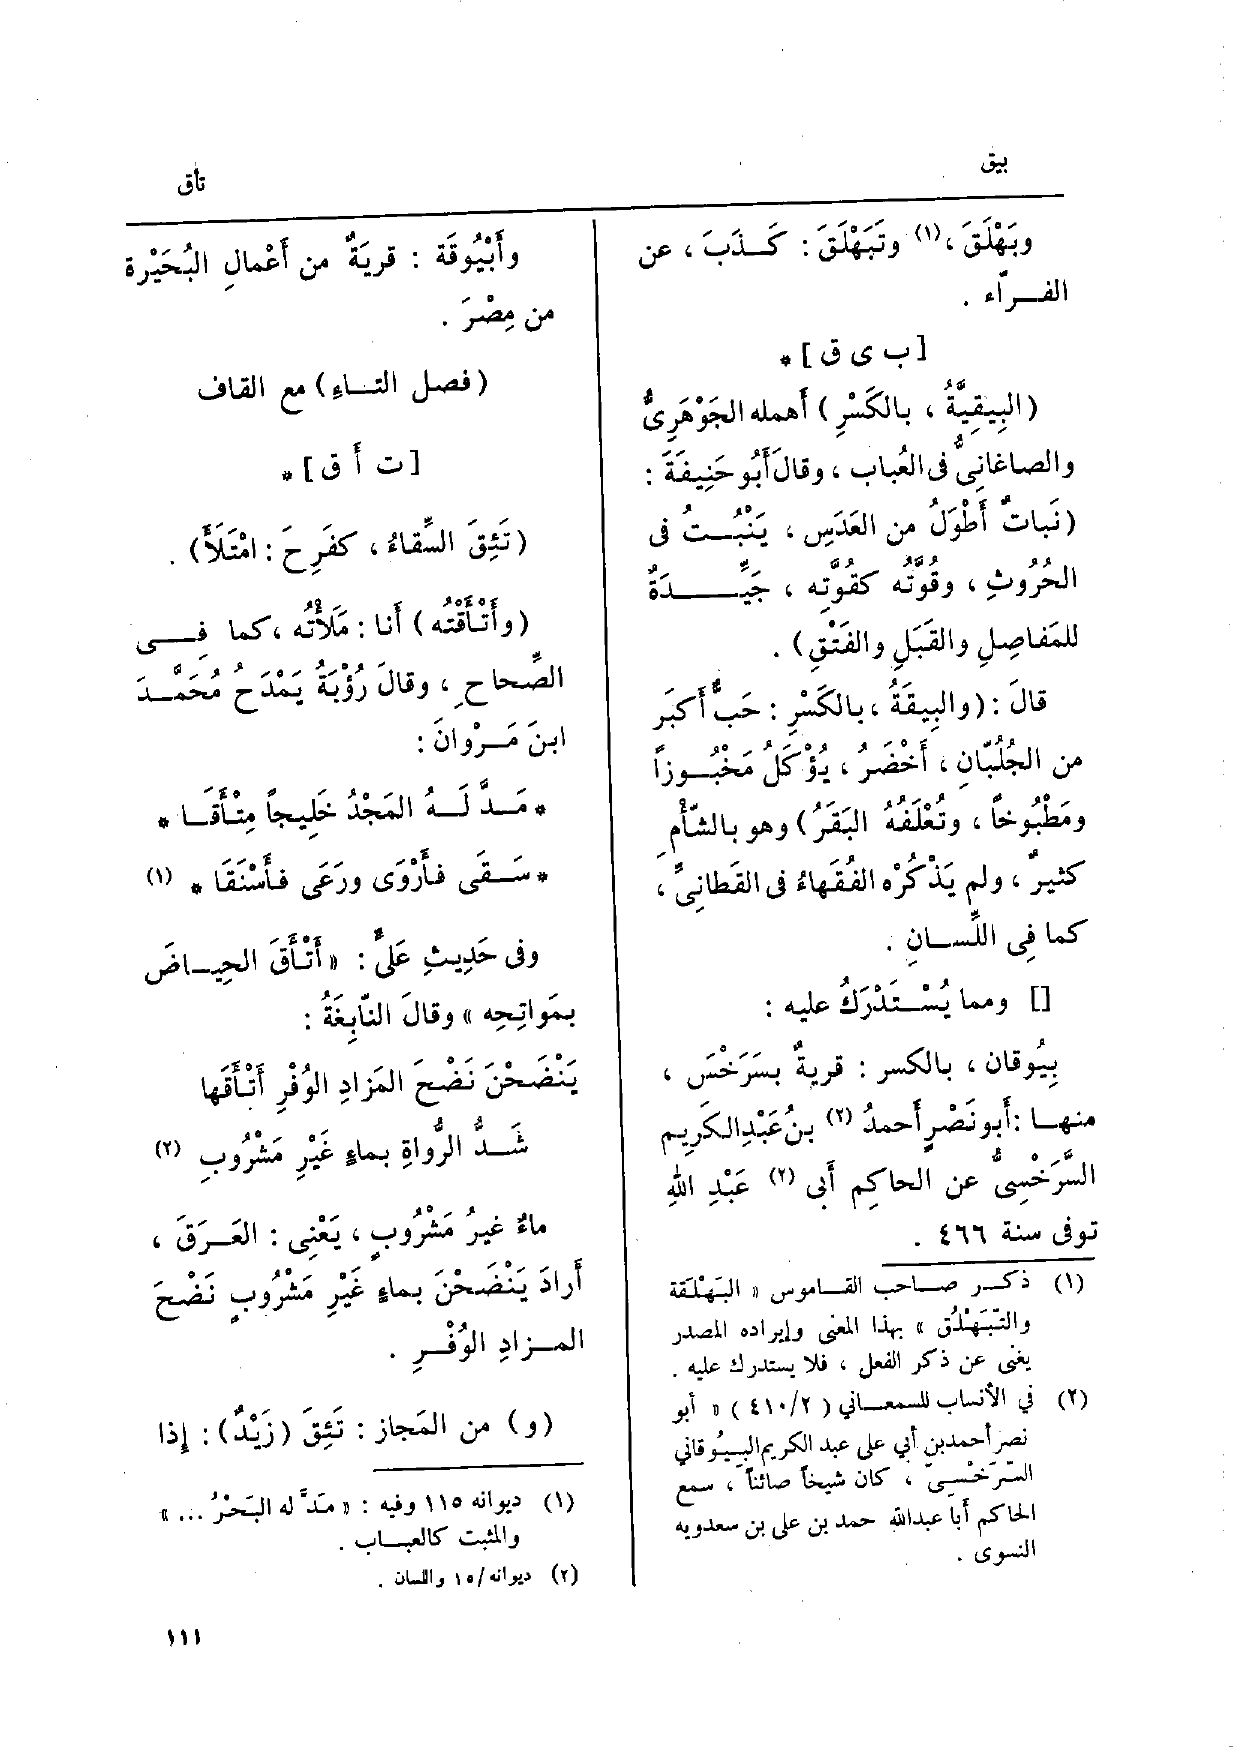 بيق
تأق
وبَهْلَقَ ،(١) وتَبَهْلَقَ : كَــذَبَ ، عن
الفــرّاء .
[ ب ى ق ] *
(البِيقِيَّةُ ، بالكَسْرِ ) أهمله الجَوْهَرِىُّ
والصاغانِىُّ فى العُباب ، وقالَ أَبُو حَنِيفَةَ :
(نَباتٌ أَطْوَلُ من العَدَسِ ، يَنْبُــتُ فى
الحُرُوثِ ، وقُوَّتُه كقُوَّتِه ، جَيِّــــدَةٌ
للمَفاصِلِ والقَبَلِ والفَتْقِ) .
قالَ : (والبِيقَةُ ، بالكَسْرِ : حَبٌّ أَكبَر
من الجُلُبّانِ ، أَخْضَرُ ، يُؤْكَلُ مَخْبُــوزاً
ومَطْبُوخاً ، وتُعْلَفُهُ البَقَرُ) وهو بالشَّأْمِ
كثيرٌ ، ولم يَذْكُرْه الفُقَهاءُ فى القَطانِىِّ ،
كما فِى اللِّســانِ .
[] ومما يُسْــتَدْرَكُ عليه :
بِيُوقان ، بالكسر : قريةٌ بسَرَخْسَ ،
منهــا : أَبو نَصْرٍ أَحمدُ (٢) بنُ عَبْدِ الكَرِيم
السَّرَخْسِىُّ عن الحاكِم أَبى (٢) عَبْدِ اللهِ
توفى سنة ٤٦٦ .
(١) ذكــر صــاحب القــاموس « البَهْلَقة
والتَبَهْلُق » بهذا المعنى وإيراده المصدر
يغنى عن ذكر الفعل ، فلا يستدرك عليه .
(٢) في الأنساب للسمعــاني ( ٤١٠/٢ ) « أبو
نصر أحمد بن أبي على عبد الكريم البيُوقاني
السَّرَخْسِىّ ، كان شيخاً صائناً ، سمع
الحاكم أبا عبدالله حمد بن على بن سعدويه
النسوى .
وأَبْيُوقَة : قريَةٌ من أَعْمالِ البُحَيْرة
من مِصْرَ .
(فصل التــاء) مع القاف
[ ت أ ق ] *
(تَئِقَ السِّقاءُ ، كفَرِحَ : امْتَلَأَ) .
(وأَتْأَقْتُه) أنا : مَلَأْتُه ، كما فِــى
الصِّحاحِ ، وقالَ رُؤْبَةُ يَمْدَحُ مُحَمَّــدَ
ابنَ مَــرْوانَ :
* مَــدَّ لَــهُ المَجْدُ خَلِيجاً مِتْأَقَــا *
* سَــقَى فأَرْوَى ورَعَى فأَسْنَقَا * (١)
وفى حَدِيثِ عَلىٍّ : « أَتْأَقَ الحِيــاضَ
بمَواتِحِه » وقالَ النّابِغَةُ :
يَنْضَحْنَ نَضْحَ المَزادِ الوُفْرِ أَتْأَقَها
شَــدُّ الرُّواةِ بماءٍ غَيْرِ مَشْرُوبِ (٢)
ماءٌ غيرُ مَشْرُوبٍ ، يَعْنِى : العَــرَقَ ،
أَرادَ يَنْضَحْنَ بماءٍ غَيْرِ مَشْرُوبٍ نَضْحَ
المــزادِ الوُفْــرِ .
(و) من المَجاز : تَئِقَ (زَيْدٌ) : إذا
(١) ديوانه ١١٥ وفيه : « مَدَّ له البَحْرُ ... »
والمثبت كالعبــاب .
(٢) ديوانه/١٥ واللسان .
١١١